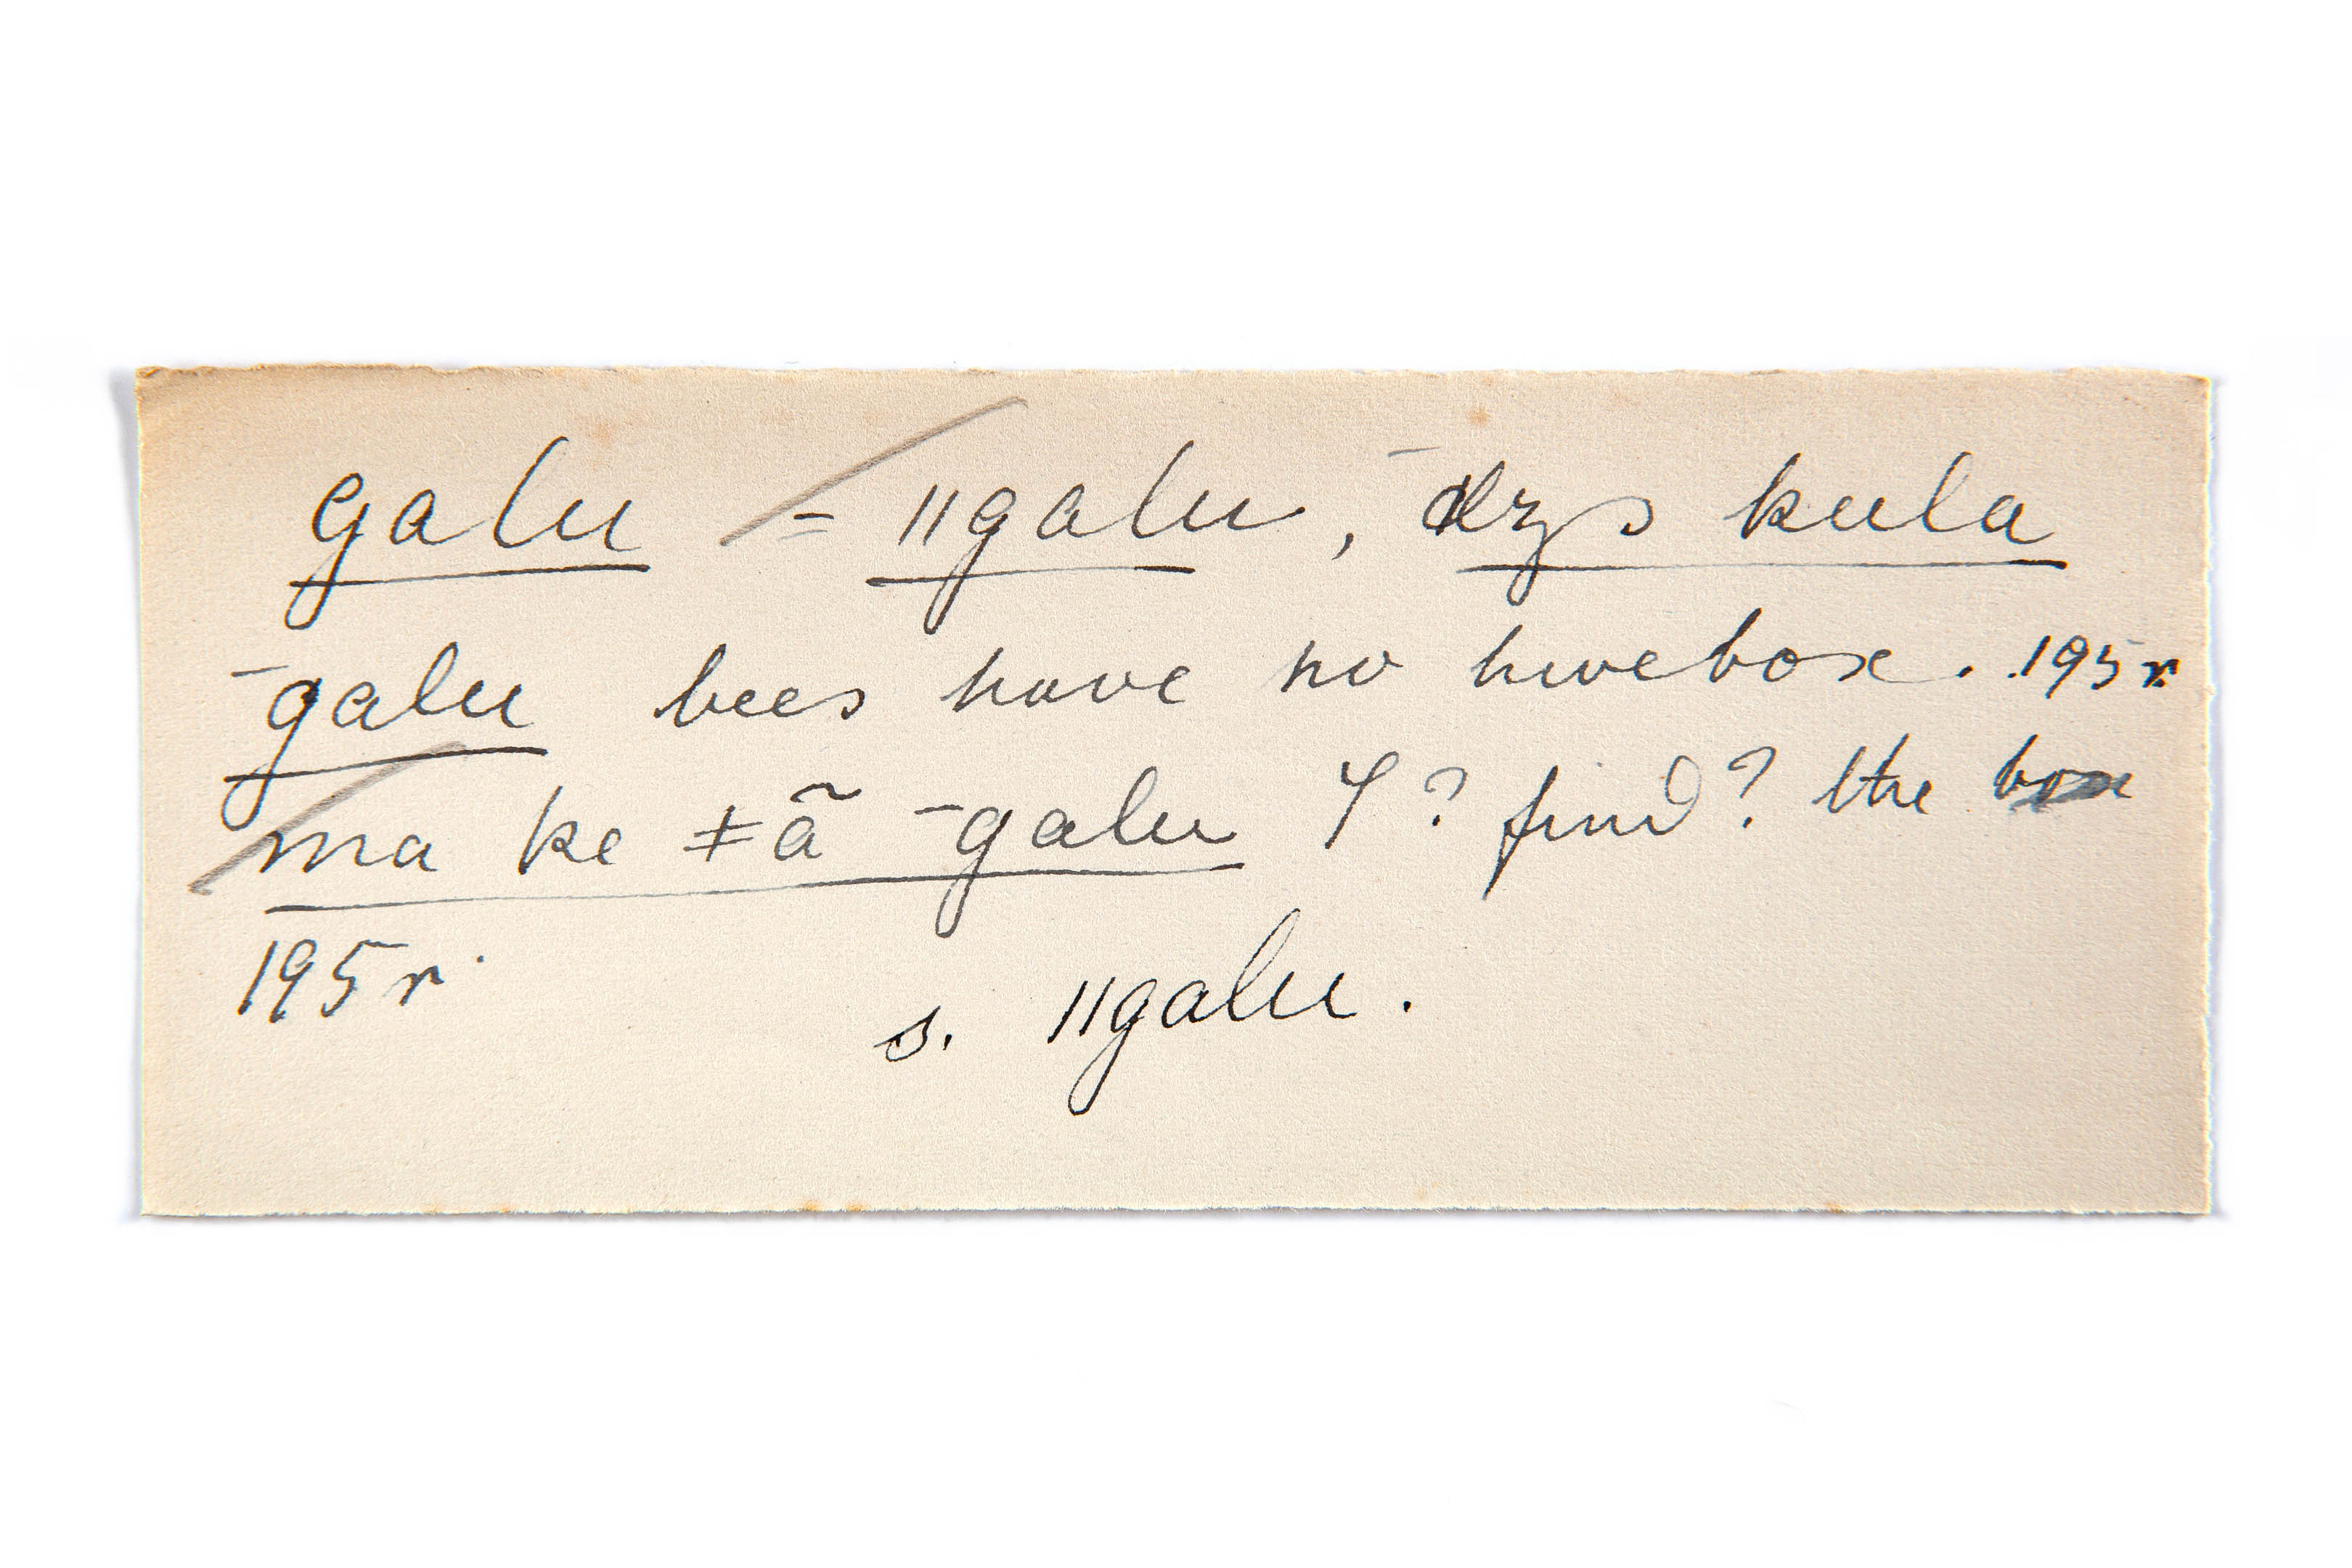 galu = ǁgalu, ¯dzs kula
¯galu bees have no hivebox. 195r
ma ke ǂã ¯galu I ? find? the box
195r.
s. ǁgalu.